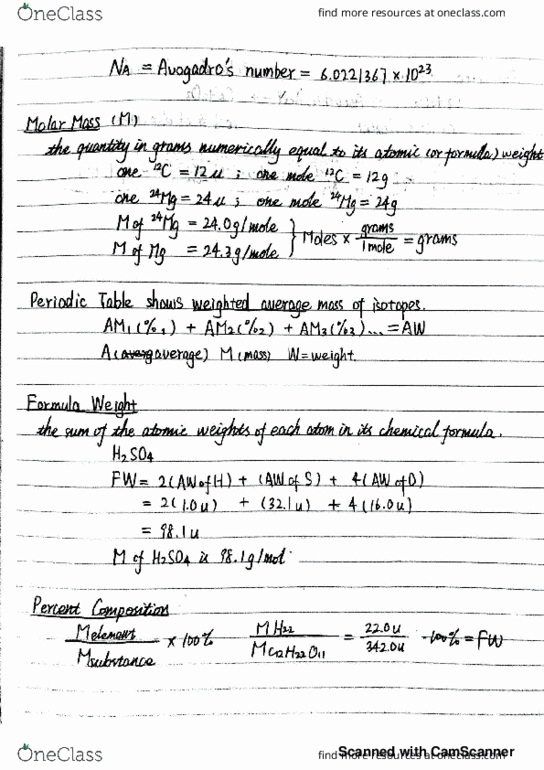 OneClass
find more resources at oneclass.com
NA = Avogadro's number = 6.0221367 x 10^23
Molar Mass (M)
the quantity in grams numerically equal to its atomic (or formula) weight
one ¹²C = 12 u ; one mole ¹²C = 12g
one ²⁴Mg = 24u ; one mole ²⁴Mg = 24g
M of ²⁴Mg = 24.0g/mole } Moles x grams/1mole = grams
M of Mg = 24.3g/mole
Periodic Table shows weighted average mass of isotopes.
AM1(%1) + AM2(%2) + AM3(%3)... = AW
A(average) M(mass) W=weight.
Formula Weight
the sum of the atomic weights of each atom in its chemical formula.
H2SO4
FW= 2(AW of H) + (AW of S) + 4(AW of O)
= 2(1.0u) + (32.1u) + 4(16.0u)
= 98.1u
M of H2SO4 is 98.1g/mol
Percent Composition
M element/M substance x 100% MH22/MC12H22O11 = 22.0u/342.0u ·100% = FW
OneClass
find more resources at oneclass.com
Scanned with CamScanner